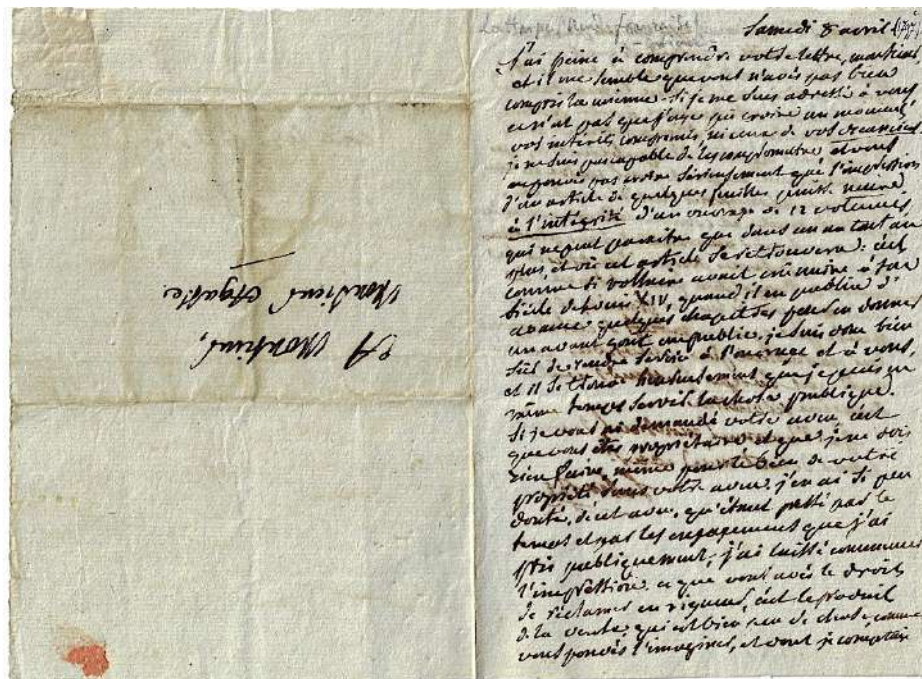 A Monsieur,
Monsieur Agasse.
Samedi 8 avril (1797)
j'ai peine à comprendre votre lettre, monsieur,
et il me semble que vous n'avés pas bien
compris la mienne. Si je me suis adressé à vous
ce n'est pas que j'aye pu croire un moment
vos intérêts compromis, ni ceux de vos
je ne suis pas capable de les compromettre et vous
ne pouvés pas croire sérieusement que l'impression
d'un article de quelques feuilles puisse nuire
à l'intégrité d'un ouvrage de 12 volumes,
qui ne peut paraitre que dans un an tout au
plus, et où cet article se retrouvera : c'est
comme si voltaire avait crû nuire à son
siècle de Louis XIV, quand il en publia d'
avance quelques chapitres pour en donner
un avant goût au public. je suis donc bien
sûr de rendre service à l'ouvrage et à vous
et il se trouve heureusement que je puis en
même temps servir la chose publique.
Si je vous ai demandé votre aveu, c'est
que vous êtes propriétaire et que je ne dois
rien faire, même pour le bien de votre
propriété sans votre aveu. j'en ai si peu
douté, de cet aveu, qu'étant pressé par le
temps et par les engagemens que j'ai
pris publiquement, j'ai laissé commencer
l'impression. ce que vous avés le droit
de réclamer en rigueur, c'est le produit
de la vente, qui est bien peu de chose, comme
vous pouvés l'imaginer, et dont je comptais